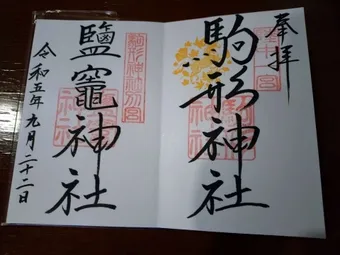 奉拝
駒形神社
鹽竈神社
令和五年九月二十二日
駒形神社別宮